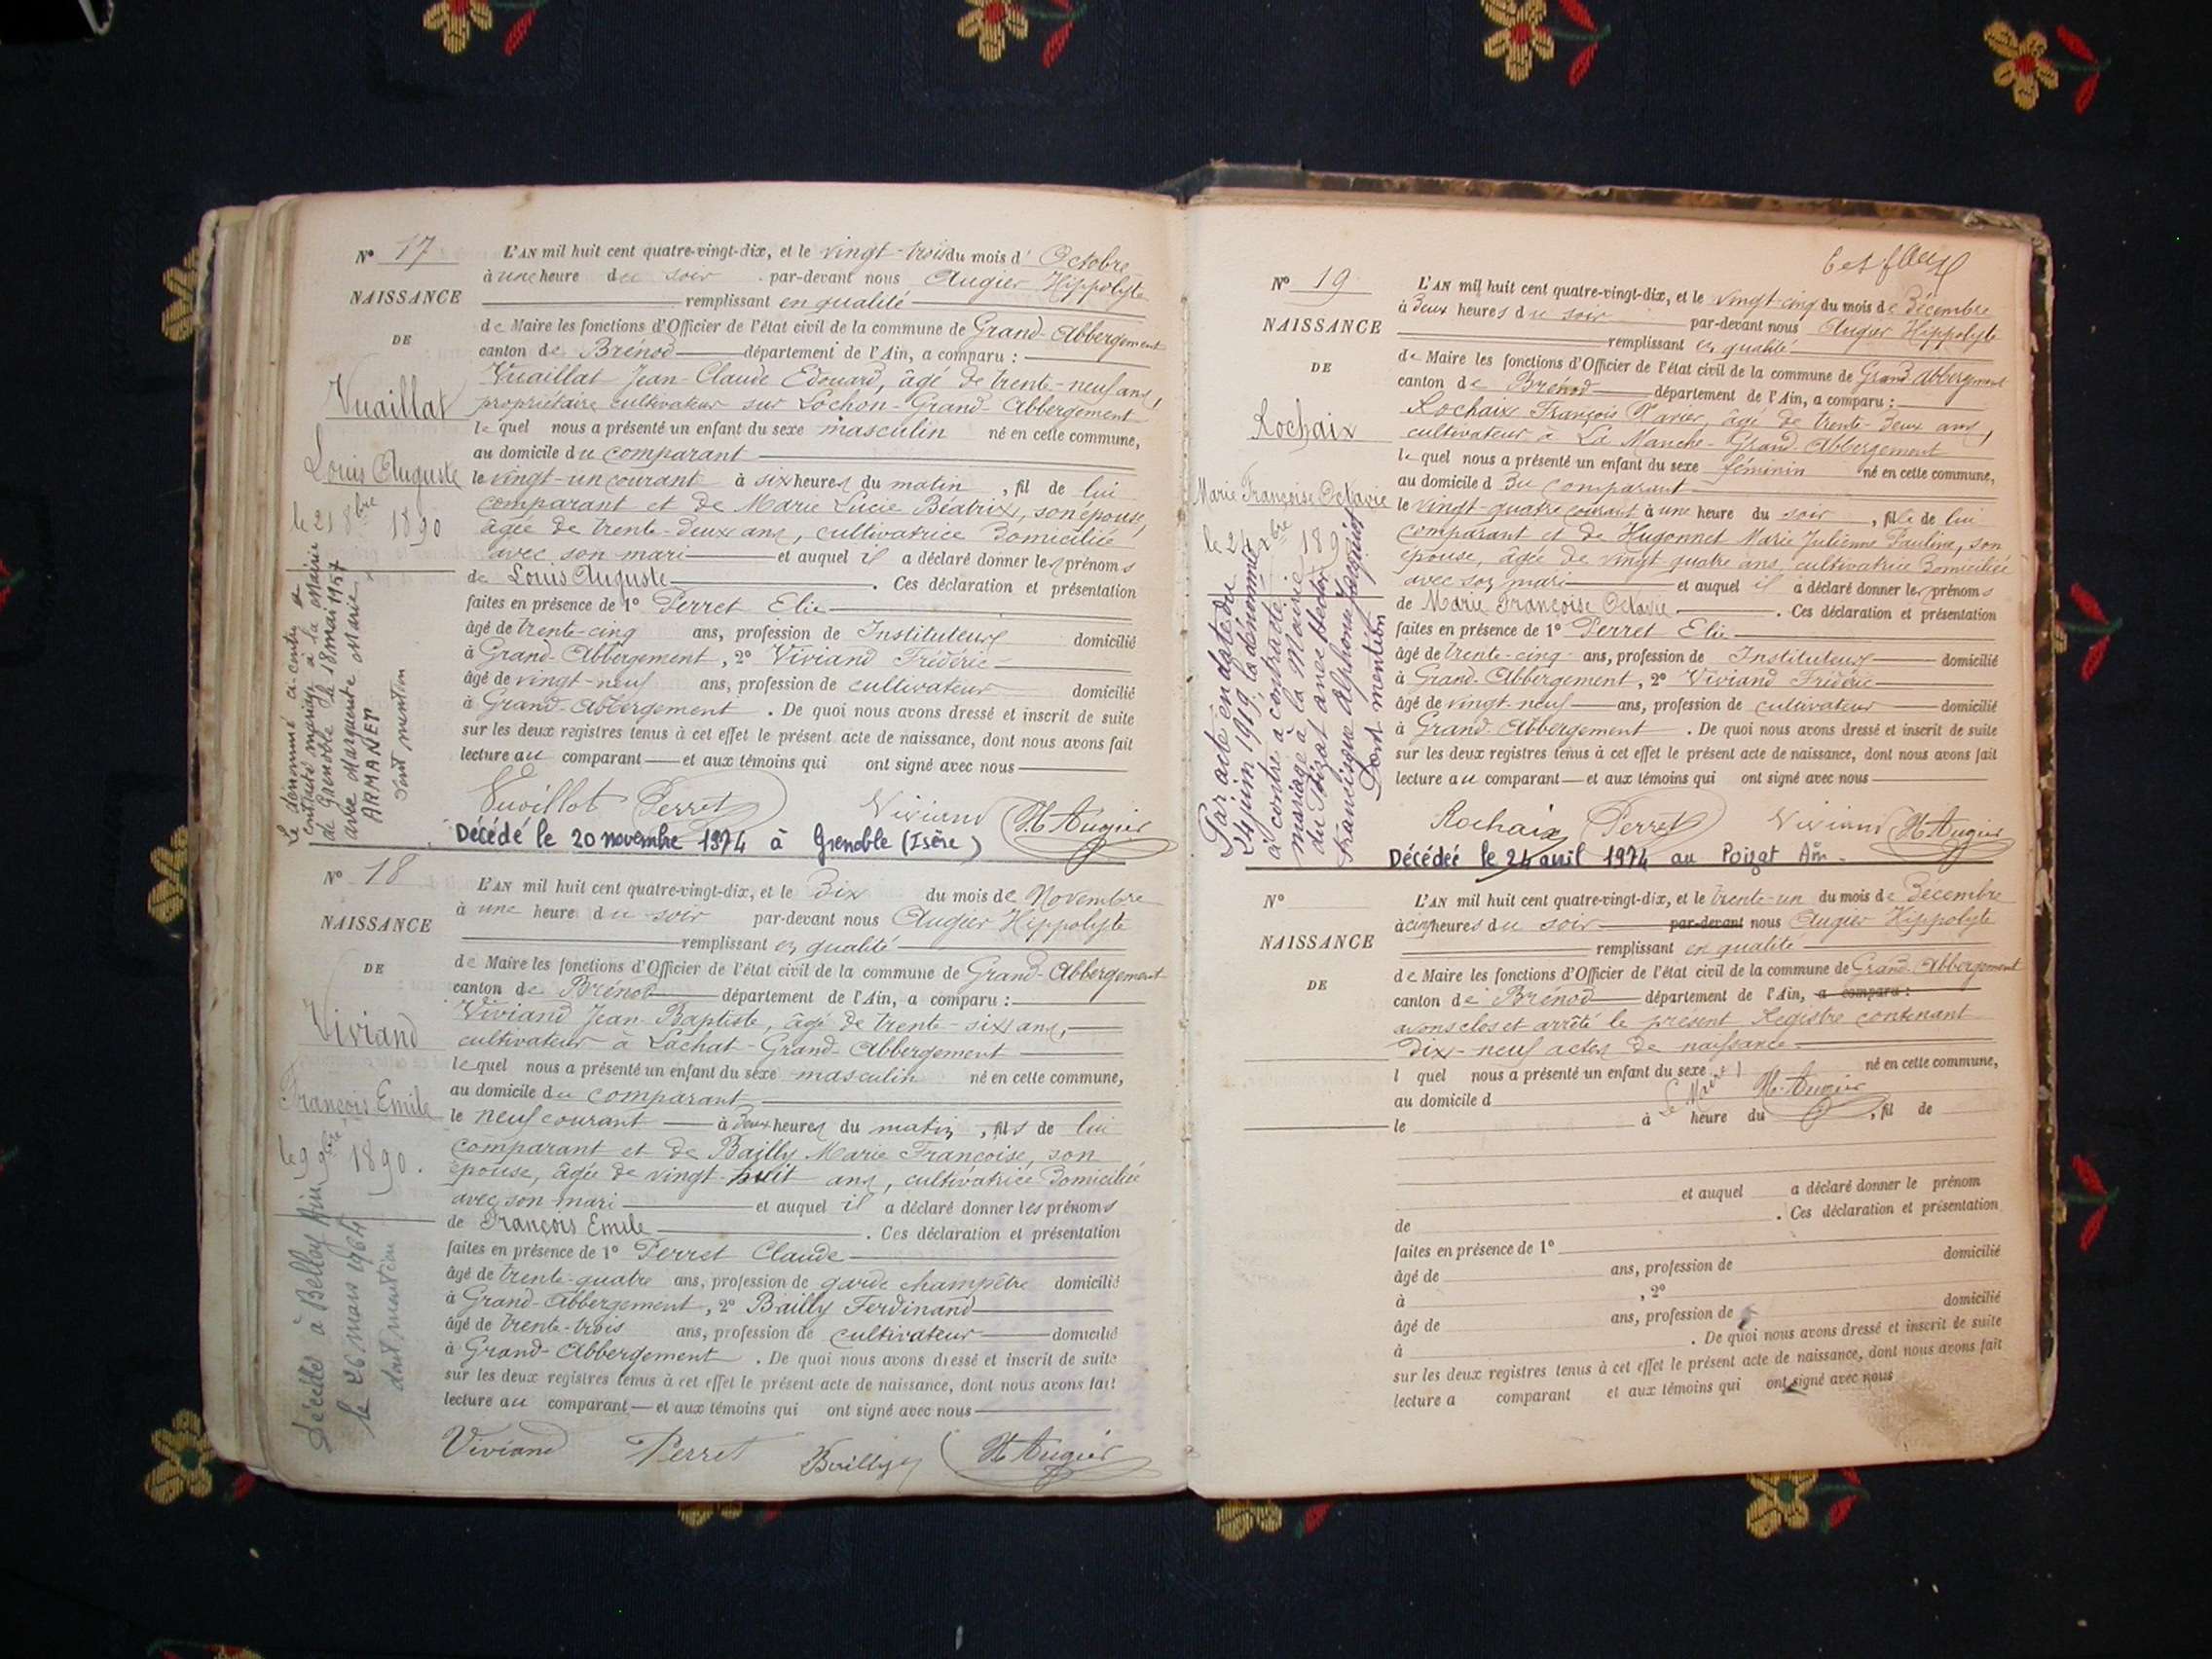 N° 17
NAISSANCE
DE
Vuaillat
Louis Auguste
le 21 8bre 1890
Le dénommé ci-contre a
contracté mariage à la Mairie
de Grenoble le 18 mai 1957
avec Marguerite Marie
ARMANET
dont mention
L'AN mil huit cent quatre-vingt-dix, et le vingt-trois du mois d' Octobre
à une heure du soir par-devant nous Augier Hippolyte
remplissant en qualité
de Maire les fonctions d'Officier de l'état civil de la commune de Grand-Abbergement
canton de Brénod département de l'Ain, a comparu :
Vuaillat Jean-Claude Edouard, âgé de trente-neuf ans,
propriétaire cultivateur sur Lochon-Grand-Abbergement
lequel nous a présenté un enfant du sexe masculin né en cette commune,
au domicile du comparant
le vingt-un courant à six heures du matin, fil de lui
comparant et de Marie Lucie Béatrix, son épouse,
âgée de trente-deux ans, cultivatrice domiciliée
avec son mari et auquel il a déclaré donner les prénoms
de Louis Auguste. Ces déclaration et présentation
faites en présence de 1° Perret Elie
âgé de trente-cinq ans, profession de Instituteur domicilié
à Grand-Abbergement, 2° Viviand Frédéric
âgé de vingt-neuf ans, profession de cultivateur domicilié
à Grand-Abbergement. De quoi nous avons dressé et inscrit de suite
sur les deux registres tenus à cet effet le présent acte de naissance, dont nous avons fait
lecture au comparant et aux témoins qui ont signé avec nous
Vuillot Perret Viviand H. Augier
Décédé le 20 novembre 1974 à Grenoble (Isère)
N° 18
NAISSANCE
DE
Viviand
François Emile
le 9 9bre 1890.
Décédé à Belley Ain
le 26 mars 1964
dont mention
L'AN mil huit cent quatre-vingt-dix, et le Dix du mois de Novembre
à une heure du soir par-devant nous Augier Hippolyte
remplissant en qualité
de Maire les fonctions d'Officier de l'état civil de la commune de Grand-Abbergement
canton de Brénod département de l'Ain, a comparu :
Viviand Jean-Baptiste, âgé de trente-six ans,
cultivateur à Lachat-Grand-Abbergement
lequel nous a présenté un enfant du sexe masculin né en cette commune,
au domicile du comparant
le neuf courant à deux heures du matin, fils de lui
comparant et de Bailly Marie Françoise, son
épouse, âgée de vingt-huit ans, cultivatrice domiciliée
avec son mari et auquel il a déclaré donner les prénoms
de François Emile. Ces déclaration et présentation
faites en présence de 1° Perret Claude
âgé de trente-quatre ans, profession de garde champêtre domicilié
à Grand-Abbergement, 2° Bailly Ferdinand
âgé de trente-trois ans, profession de cultivateur domicilié
à Grand-Abbergement. De quoi nous avons dressé et inscrit de suite
sur les deux registres tenus à cet effet le présent acte de naissance, dont nous avons fait
lecture au comparant et aux témoins qui ont signé avec nous
Viviand Perret Bailly H. Augier
N° 19
NAISSANCE
DE
Rochaix
Marie Françoise Octavie
Par acte en date du
24 juin 1919, la dénommée
ci contre a contracté
mariage à la Mairie
du Poizat avec Hector
Francisque Alphonse Jacquiot
Dont mention
L'AN mil huit cent quatre-vingt-dix, et le vingt-cinq du mois de Décembre
à Deux heures du soir par-devant nous Augier Hippolyte
remplissant en qualité
de Maire les fonctions d'Officier de l'état civil de la commune de Grand-Abbergement
canton de Brénod département de l'Ain, a comparu :
Rochaix François Xavier, âgé de trente-deux ans,
cultivateur à La Manche-Grand-Abbergement
lequel nous a présenté un enfant du sexe féminin né en cette commune,
au domicile d du comparant
le vingt-quatre courant à une heure du soir, fille de lui
comparant et de Hugonnet Marie Julienne Pauline, son
épouse, âgée de vingt quatre ans, cultivatrice domiciliée
avec son mari et auquel il a déclaré donner les prénoms
de Marie Françoise Octavie. Ces déclaration et présentation
faites en présence de 1° Perret Elie
âgé de trente-cinq ans, profession de Instituteur domicilié
à Grand-Abbergement, 2° Viviand Frédéric
âgé de vingt-neuf ans, profession de cultivateur domicilié
à Grand-Abbergement. De quoi nous avons dressé et inscrit de suite
sur les deux registres tenus à cet effet le présent acte de naissance, dont nous avons fait
lecture au comparant et aux témoins qui ont signé avec nous
Rochaix Perret Viviand H. Augier
Décédée le 24 avril 1974 au Poizat Ain
N°
NAISSANCE
DE
L'AN mil huit cent quatre-vingt-dix, et le trente-un du mois de Décembre
à cinq heures du soir par-devant nous Augier Hippolyte
remplissant en qualité
de Maire les fonctions d'Officier de l'état civil de la commune de Grand-Abbergement
canton de Brénod département de l'Ain, a comparu :
avons clos et arrêté le présent Registre contenant
Dix-neuf actes de naissance
l quel nous a présenté un enfant du sexe né en cette commune,
Le Maire
H. Augier
au domicile d
le à heure du , fil de
et auquel a déclaré donner le prénom
de . Ces déclaration et présentation
faites en présence de 1°
âgé de ans, profession de domicilié
à , 2°
âgé de ans, profession de domicilié
à . De quoi nous avons dressé et inscrit de suite
sur les deux registres tenus à cet effet le présent acte de naissance, dont nous avons fait
lecture a comparant et aux témoins qui ont signé avec nous